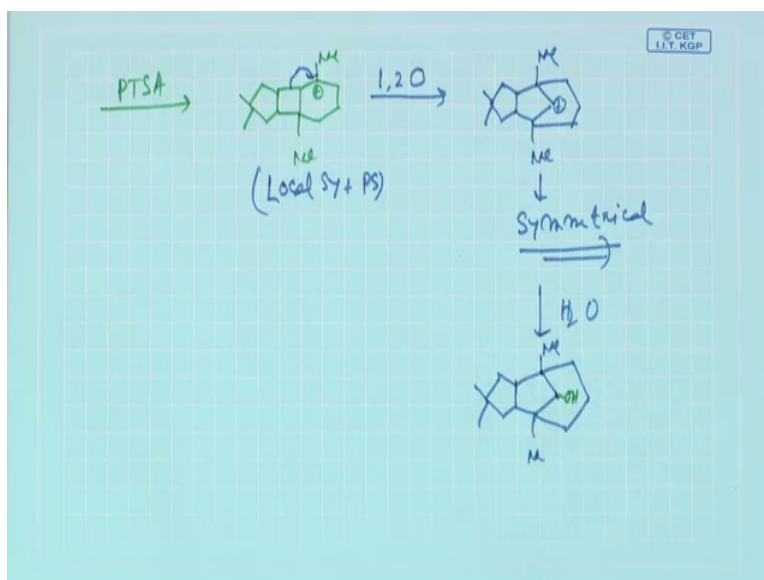 © CET
I.I.T. KGP
PTSA
Me
⊕
Me
(Local Sy + PS)
1,2 O
Me
⊕
Me
Symmetrical
H2O
Me
OH
M